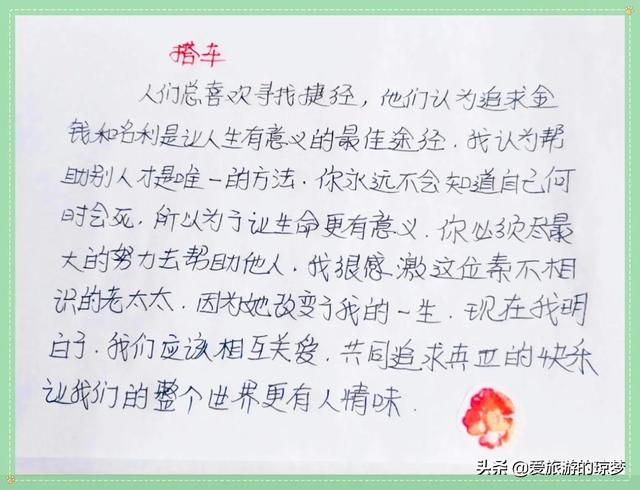 搭车
人们总喜欢寻找捷径，他们认为追求金
钱和名利是让人生有意义的最佳途径．我认为帮
助别人才是唯一的方法．你永远不会知道自己何
时会死，所以为了让生命更有意义．你必须尽最
大的努力去帮助他人．我很感激这位素不相
识的老太太．因为她改变了我的一生．现在我明
白了．我们应该相互关爱．共同追求真正的快乐
让我们的整个世界更有人情味．
头条 @爱旅游的琼梦